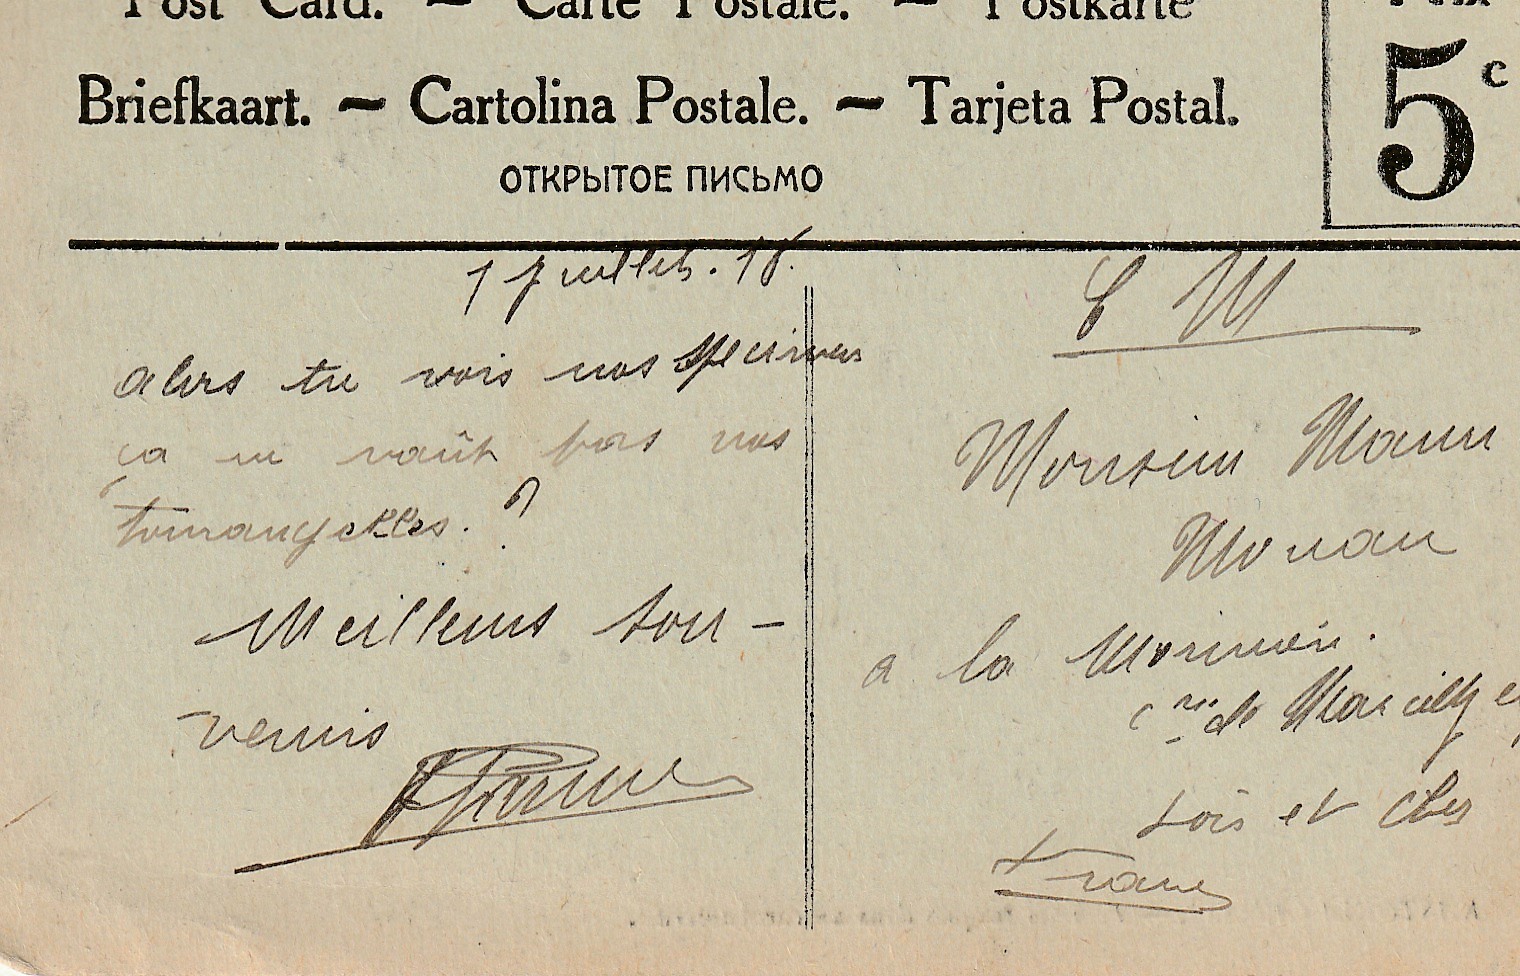 Post Card. – Carte Postale. – Postkarte
Briefkaart. – Cartolina Postale. – Tarjeta Postal.
ОТКРЫТОЕ ПИСЬМО
5c
17 juillet. 18.
alors tu vois nos spécimens
ça ne vaût pas nos
tourangelles. ?
Meilleurs sou-
venirs
F M
Monsieur
a la
Cne de Marcilly e
Loir et Cher
France